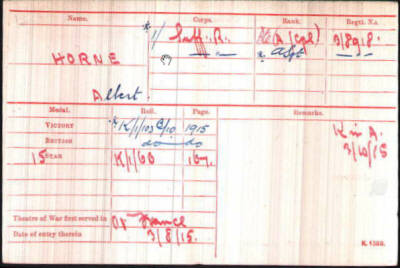 Name. Corps. Rank. Regtl. No.
HORNE * 1/ Suff. R. (Cpl) 3/8918.
* A Sjt
Albert.
Medal. Roll. Page. Remarks.
VICTORY * K/1/103 B/10 1915 K in A.
BRITISH do do 3/10/15
15 STAR K/1/60 167.
Theatre of War first served in France
Date of entry therein 3/8/15.
K. 1380.